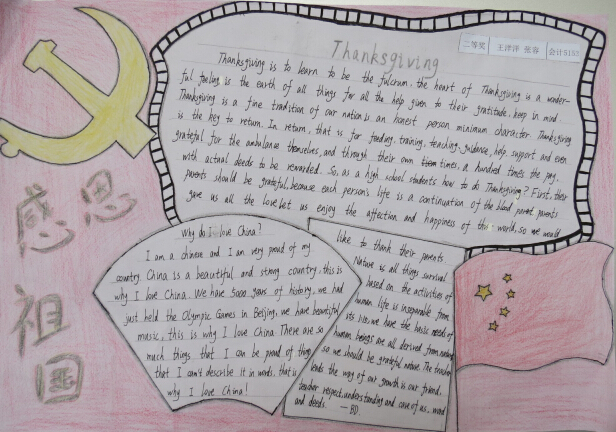 Thanksgiving
二等奖 王洋洋 张蓉 会计5133
Thanksgiving is to learn to be the fulcrum. the heart of Thanksgiving is a wonder-
ful feeling is the earth of all things for all the help given to their gratitude. keep in mind.
Thanksgiving is a fine tradition of our nation is an honest person minimum character. Thanksgiving
is the key to return. In return, that is for feeding, training, teaching, guidance, help, support and even
grateful for the ambulance themselves, and through their own times, a hundred times the pay,
with actual deeds to be rewarded. So, as a high school students how to do Thanksgiving? First, their
parents should be grateful, because each person's life is a continuation of the blood parents
gave us all the love. Let us enjoy the affection and happiness of the world, so we would
like to thank their parents
Nature is all things survival
based on the activities of
human life is inseparable from
its life, we have the basic needs of
human beings are all derived from nature
so we should be grateful nature. The teacher
leads the way of our growth is our friend,
teacher respect, understanding and care of us, word
and deeds. — BD.
Why do I love China?
I am a chinese and I am very proud of my
country. China is a beautiful and strong country, this is
why I love China. We have 5000 years of history, we had
just held the Olympic Games in Beijing, we have beautiful
music, this is why I love China. There are so
much things that I can be proud of thing
that I can't describe it in words. that is
why I love China!
感恩
祖
国